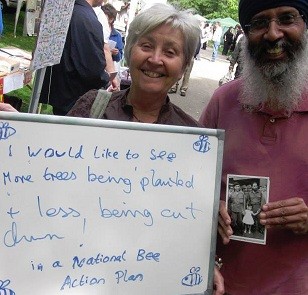 I would like to see
More trees being planted
+ less being cut
down!
in a National Bee
Action Plan